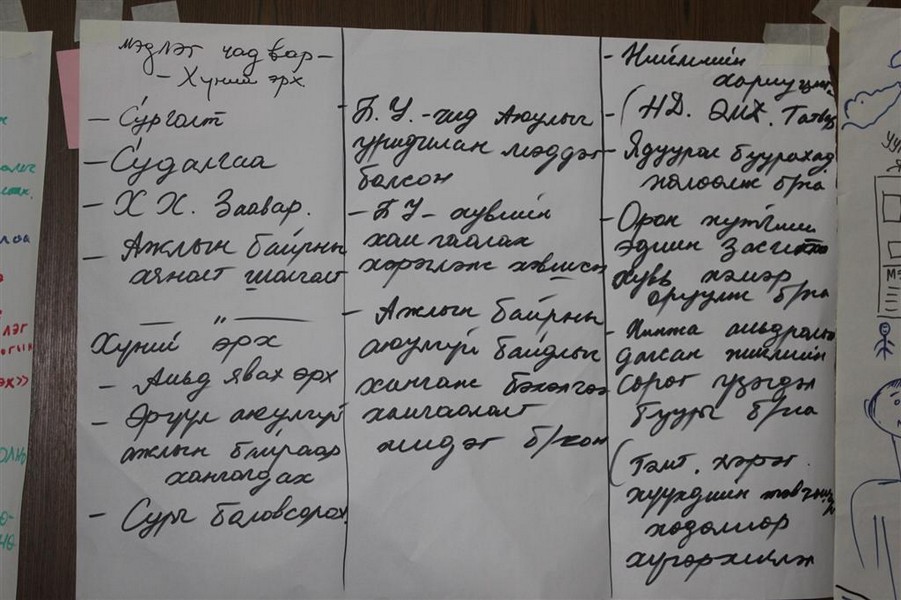 мэдлэг чадвар –
– Хүний эрх
– Сургалт
– Судалгаа
– Х Х. Заавар.
– Ажлын байрны
хяналт шалгалт
— " —
Хүний эрх
– Амьд явах эрх
– Эрүүл аюулгүй
ажлын байраар
хангагдах
– Сурч боловсорох
Б.У.-чид Аюулыг
урьдчилан мэддэг
болсон
– Б.У – хувийн
хамгаалах
хэрэглэж хэвшсэн
– Ажлын байрны
аюулгүй байдлыг
хангаж бэхэлгээ
хамгаалалт
хийдэг б/сон
– Нийгмийн
хариуцлага
– ( НД. ЭМД. Татвар
– Ядуурал буурахад
нөлөөлж б/на
– Орон нутгийн
эдийн засагт
хувь нэмэр
оруулж б/на
– амьдралыг
дагсан нийгмийн
сөрөг үзэгдэл
буурч б/на
( Гэмт. хэрэг
хүүхдийн
хөдөлмөр
хүчирхийлэл